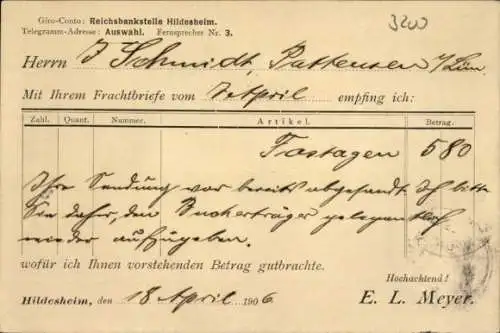 Giro-Conto: Reichsbankstelle Hildesheim.
Telegramm-Adresse: Auswahl. Fernsprecher Nr. 3.
3200
Herrn J Schmidt, Pattensen
Mit Ihrem Frachtbriefe vom April empfing ich:
Zahl. Quant. Nummer. Artikel. Betrag.
Fastagen 580
Ihre Sendung war bereits abgesandt Ich bitte
Sie daher, den gelegentlich
wieder aufzugeben.
wofür ich Ihnen vorstehenden Betrag gutbrachte.
Hochachtend!
Hildesheim, den 18 April 1906 E. L. Meyer.